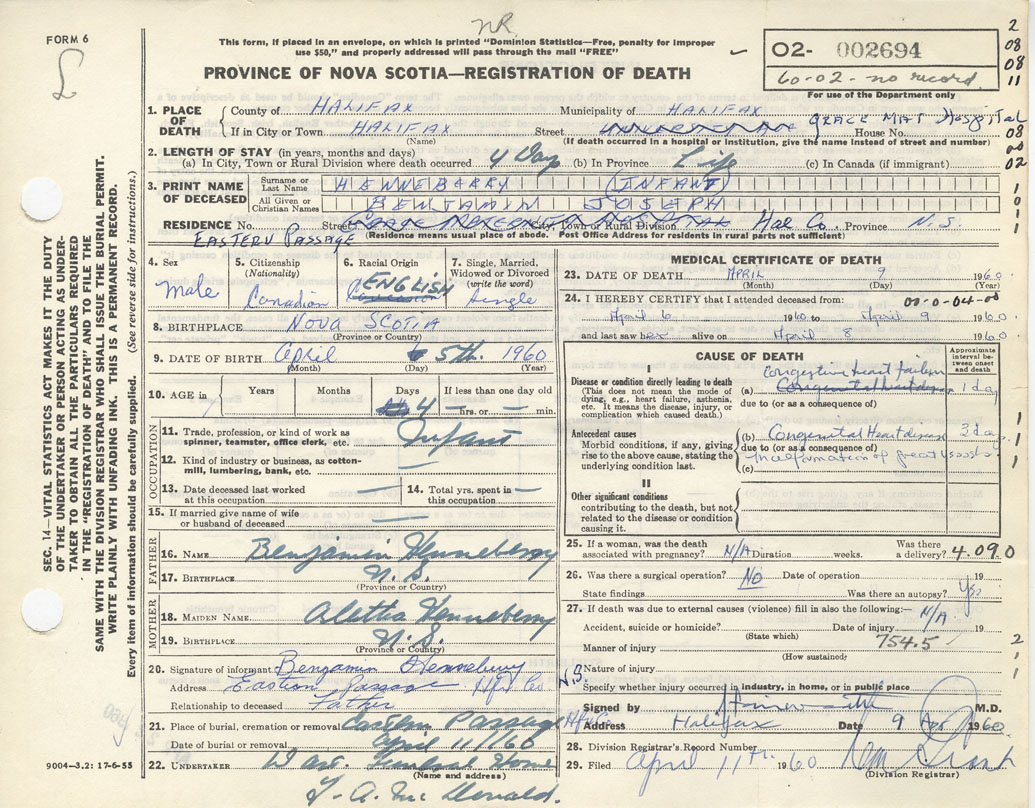 NR
FORM 6
L
This form, if placed in an envelope, on which is printed "Dominion Statistics—Free, penalty for improper
use $50," and properly addressed will pass through the mail "FREE"
PROVINCE OF NOVA SCOTIA—REGISTRATION OF DEATH
O2- 002694
60-02- no record
For use of the Department only
2
08
08
11
1. PLACE OF DEATH
County of HALIFAX Municipality of HALIFAX
If in City or Town HALIFAX Street GRACE MAT Hospital House No.
(Name) (If death occurred in a hospital or Institution, give the name instead of street and number)
08
00
02
2. LENGTH OF STAY (in years, months and days)
(a) In City, Town or Rural Division where death occurred 4 Days (b) In Province Life (c) In Canada (if immigrant)
3. PRINT NAME OF DECEASED
Surname or Last Name HENNEBERRY (INFANT)
All Given or Christian Names BENJAMIN JOSEPH
RESIDENCE No. Street City, Town or Rural Division Hal Co. Province N.S.
EASTERN PASSAGE (Residence means usual place of abode. Post Office Address for residents in rural parts not sufficient)
SEC. 14—VITAL STATISTICS ACT MAKES IT THE DUTY
OF THE UNDERTAKER OR PERSON ACTING AS UNDER-
TAKER TO OBTAIN ALL THE PARTICULARS REQUIRED
IN THE "REGISTRATION OF DEATH" AND TO FILE THE
SAME WITH THE DIVISION REGISTRAR WHO SHALL ISSUE THE BURIAL PERMIT.
WRITE PLAINLY WITH UNFADING INK. THIS IS A PERMANENT RECORD.
Every item of information should be carefully supplied. (See reverse side for instructions.)
4. Sex
Male
5. Citizenship
(Nationality)
Canadian
6. Racial Origin
ENGLISH
7. Single, Married,
Widowed or Divorced
(write the word)
Single
8. BIRTHPLACE NOVA SCOTIA
(Province or Country)
9. DATE OF BIRTH April 5th. 1960
(Month) (Day) (Year)
10. AGE in Years Months Days If less than one day old
4 — hrs. or — min.
OCCUPATION
11. Trade, profession, or kind of work as
spinner, teamster, office clerk, etc. Infant
12. Kind of industry or business, as cotton-
mill, lumbering, bank, etc. —
13. Date deceased last worked
at this occupation —
14. Total yrs. spent in
this occupation —
15. If married give name of wife
or husband of deceased —
FATHER
16. NAME Benjamin Henneberry
17. BIRTHPLACE N.S.
(Province or Country)
MOTHER
18. MAIDEN NAME Aletha Henneberry
19. BIRTHPLACE N.S.
(Province or Country)
20. Signature of informant Benjamin Henneberry
Address Eastern Passage Hfx Co. N.S.
Relationship to deceased Father
21. Place of burial, cremation or removal Eastern Passage Hfx Co
Date of burial or removal April 11/60
22. UNDERTAKER Funeral Home
(Name and address)
T. A. Mc Donald.
9004—3.2: 17-6-55
MEDICAL CERTIFICATE OF DEATH
23. DATE OF DEATH APRIL 9 1960
(Month) (Day) (Year)
24. I HEREBY CERTIFY that I attended deceased from: 00-0-04-00
April 6 1960 to April 9 1960
and last saw her alive on April 8 1960
CAUSE OF DEATH
Approximate
interval be-
tween onset
and death
I
Disease or condition directly leading to death
(This does not mean the mode of
dying, e.g., heart failure, asthenia,
etc. It means the disease, injury, or
complication which caused death.)
Congestive heart failure
(a) Congenital heart disease 1 day
due to (or as a consequence of)
Antecedent causes
Morbid conditions, if any, giving
rise to the above cause, stating the
underlying condition last.
(b) Congenital Heart disease 3 days
due to (or as a consequence of)
of great vessels
(c)
II
Other significant conditions
contributing to the death, but not
related to the disease or condition
causing it.
25. If a woman, was the death
associated with pregnancy? N/A Duration weeks. Was there
a delivery? 4.090
26. Was there a surgical operation? No Date of operation 19
State findings Was there an autopsy? Yes
27. If death was due to external causes (violence) fill in also the following:—
Accident, suicide or homicide? Date of injury N/A 19
(State which)
Manner of injury 754.5
(How sustained)
Nature of injury
Specify whether injury occurred in industry, in home, or in public place
Signed by M.D.
Address Halifax Date 9 Apr 1960
28. Division Registrar's Record Number
29. Filed April 11th. 1960
(Division Registrar)